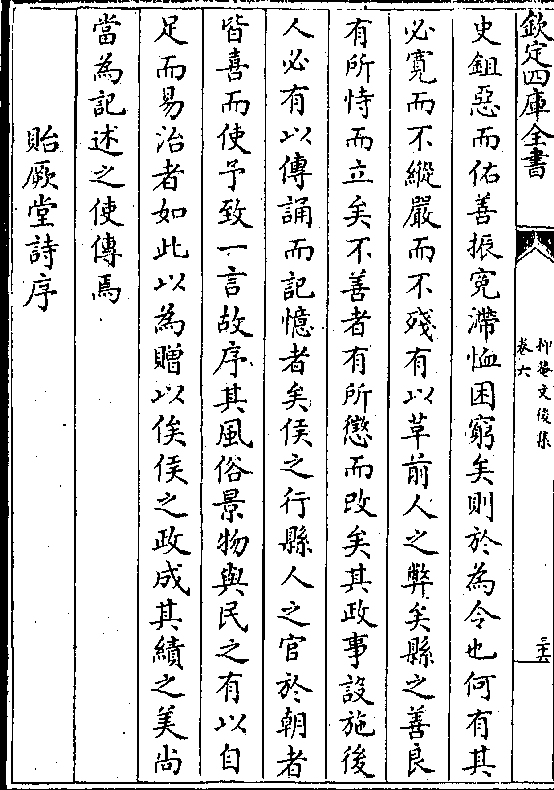 欽定四庫全書
抑菴文後集
卷六
三六
史鉏惡而佑善振寃滯恤困窮矣則於為令也何有其
必寛而不縱嚴而不殘有以革前人之弊矣縣之善良
有所恃而立矣不善者有所懲而改矣其政事設施後
人必有以傳誦而記憶者矣侯之行縣人之官於朝者
皆喜而使予致一言故序其風俗景物與民之有以自
足而易治者如此以為贈以俟侯之政成其績之美尚
當為記述之使傳焉
貽厥堂詩序